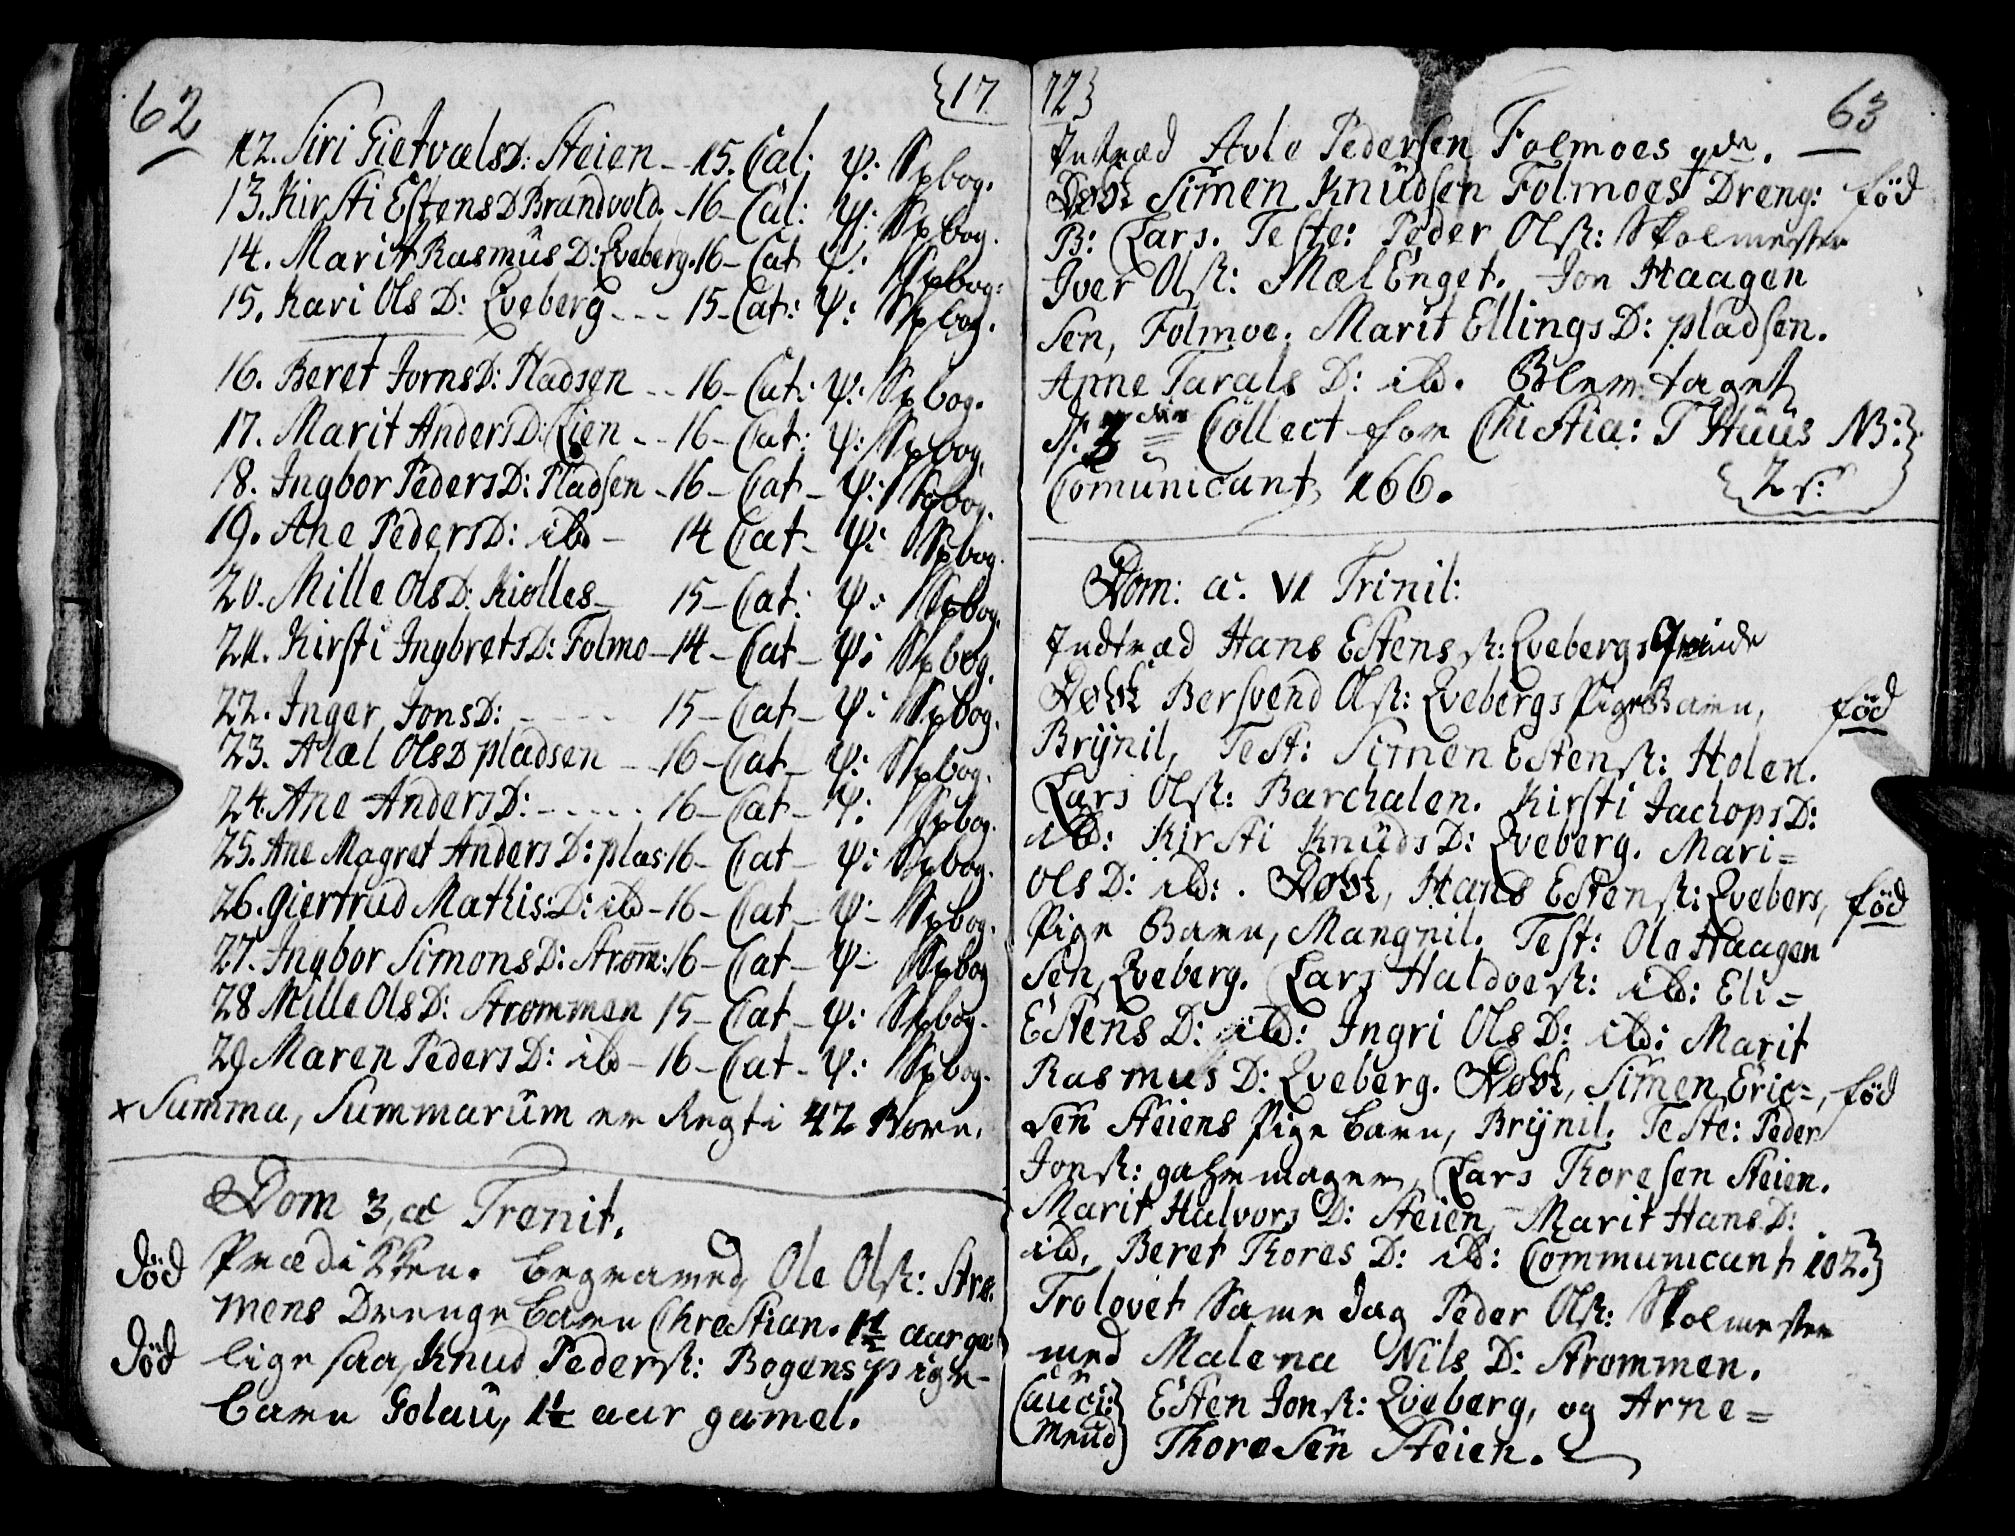 62 {17
12. Siri Gietvæls D: Steien - 15. Cat: ψ: Spbog.
13. Kirsti Estens D Brandvold. - 16 - Cat: ψ: Spbog.
14. Marit Rasmus D: Qveberg. 16 - Cat ψ: Spbog:
15. Kari Ols D: Qveberg - - - 15 - Cat: ψ: Spbog.
16. Beret Jorns D: Pladsen - - 16 - Cat: ψ: Spbog.
17. Marit Anders D: Lien - - 16 - Cat: ψ: Spbog.
18. Ingbor Peders D: Pladsen - 16 - Cat - ψ: Spbog.
19. Ane Peders D: ibd - 14 Cat - ψ: Spbog.
20. Mille Ols D: Kiølles - 15 - Cat: ψ: Spbog.
21. Kirsti Ingbrets D: Folmo - 14 - Cat - ψ: Spbog.
22. Inger Jons D: - - - - 15 - Cat - ψ: Spbog.
23. Alæl Ols D pladsen - 16 - Cat - ψ: Spbog.
24. Ane Anders D: - - - - - 16 - Cat - ψ: Spbog.
25. Ane Magret Anders D: plas 16 - Cat - ψ: Spbog.
26. Giertrud Mathis: D: ibd - 16 - Cat - ψ - Spbog.
27. Ingbor Simons D: Strøm: 16 - Cat - ψ - Spbog
28 Mille Ols D: Strømmen 15 - Cat - ψ: Spbog.
29 Maren Peders D: ibd - 16 - Cat - ψ: Spbog.
x Summa, Summarum er Regti 42 Børn.
Dom 3, a Trenit.
død Prædikken. begravned, Ole Ols: Strø-
mens Drenge barn Christian. 1½ aar ga:
død lige saa Knud Peders: Bogens pige-
barn Golau, 1½ aar gamel.
72} 63
Intræd Avle Pedersen Folmoes qde.
Døbt Simen Knudsen Folmoes Dreng: fød
B: Lars. Teste: Peder Ols: Skolmester
Iver Ols: Mæl Enget. Jon Haagen
sen, Folmoe. Marit Ellings D: pladsen.
Anne Tarals D: ibd. Blem taget
Collect for Christia: T Huus NB:}
Comunicant, 166. {2 s:
Dom: a: VI Trinit:
Indtræd Hans Estens s: Qvebergs Qvinde
Døbt Bersvend Ols: Qvebergs Pige Barn, fød
Brynil, Test: Simen Estens: Holen.
Lars Ols: Barchalen. Kirsti Jachops D:
ibd: Kirsti Knuds D: Qveberg. Mari=
Ols D: ibd: . Døbt, Hans Estens: Qvebers, fød
Pige Barn, Mangnil. Test: Ole Haagen
sen, Qveberg. Lars Haldoes: ibd: Eli=
Estens D: ibd: Ingri Ols D: ibd: Marit
Rasmus D: Qveberg. Døbt, Simen Eric=, fød
sen Steiens Pige barn, Brynil. Teste: Peder
Jons: Lars Thoresen Steien.
Marit Halvors D: Steien, Marit Hans D:
ibd, Beret Thores D: ibd: Communicant 102.}
Trolovet same dag Peder Ols: Skolmester
med Malena Nils D: Strømmen.
Cauci:} Esten Jons: Qveberg, og Arne=
Mænd} Thoresen Steien.